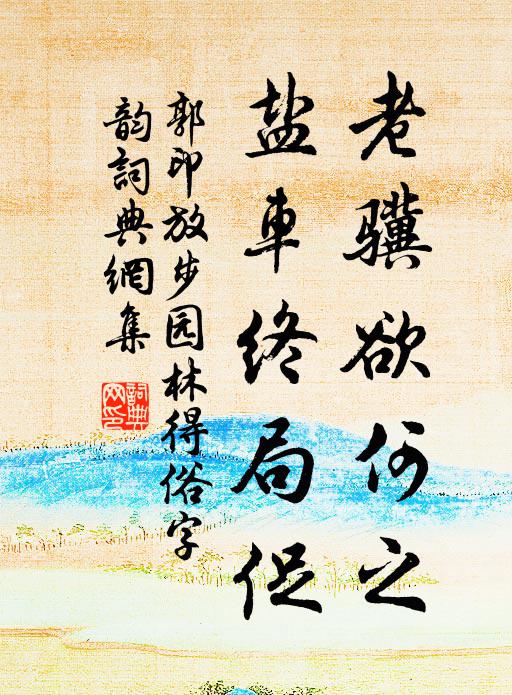 老骥欲何之
盐車终局促
郭印放步园林得俗字
韵詞典網集
詞典
网印